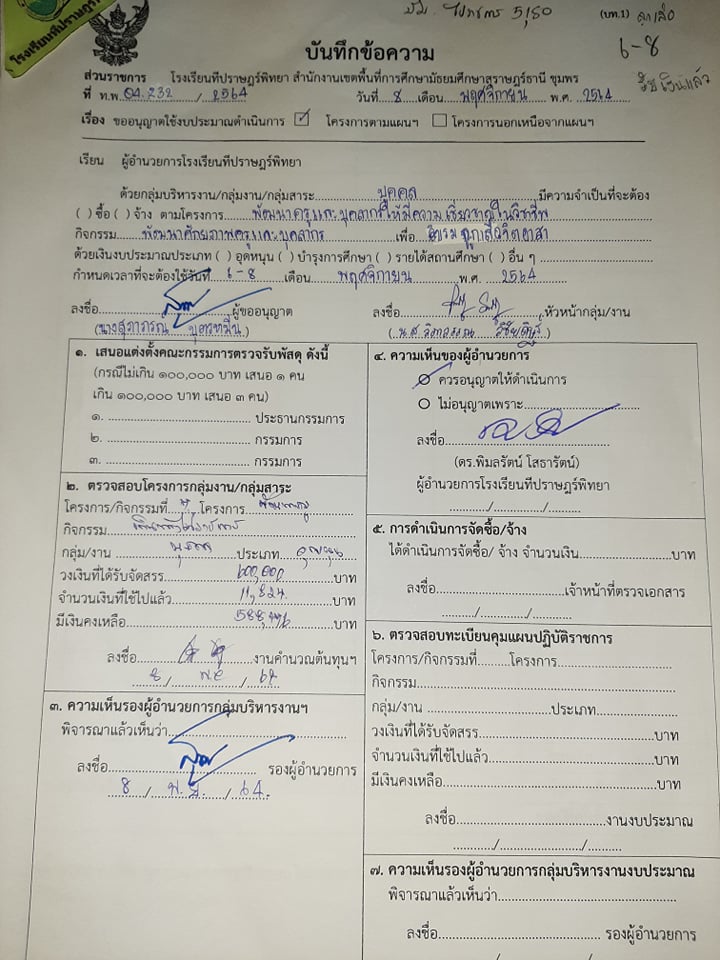 โรงเรียนทีปราษฎร์
ไปราชการ 5,180
(บท.1) ลูกเสือ
6-8
รับเงินแล้ว
บันทึกข้อความ
ส่วนราชการ โรงเรียนทีปราษฎร์พิทยา สำนักงานเขตพื้นที่การศึกษามัธยมศึกษาสุราษฎร์ธานี ชุมพร
ที่ ท.พ. 04.232 / 2564 วันที่ 8 เดือน พฤศจิกายน พ.ศ. 2564
เรื่อง ขออนุญาตใช้งบประมาณดำเนินการ ☑ โครงการตามแผนฯ ☐ โครงการนอกเหนือจากแผนฯ
เรียน ผู้อำนวยการโรงเรียนทีปราษฎร์พิทยา
ด้วยกลุ่มบริหารงาน/กลุ่มงาน/กลุ่มสาระ บุคคล มีความจำเป็นที่จะต้อง
( ) ซื้อ ( ) จ้าง ตามโครงการ พัฒนาครูและบุคลากรให้มีความเชี่ยวชาญในวิชาชีพ
กิจกรรม พัฒนาศักยภาพครูและบุคลากร เพื่อ อบรม ลูกเสือจิตอาสา
ด้วยเงินงบประมาณประเภท ( ) อุดหนุน ( ) บำรุงการศึกษา ( ) รายได้สถานศึกษา ( ) อื่น ๆ
กำหนดเวลาที่จะต้องใช้วันที่ 6-8 เดือน พฤศจิกายน พ.ศ. 2564
ลงชื่อ ผู้ขออนุญาต ลงชื่อ หัวหน้ากลุ่ม/งาน
(นางสุภาภรณ์ ) (น.ส. )
๑. เสนอแต่งตั้งคณะกรรมการตรวจรับพัสดุ ดังนี้
(กรณีไม่เกิน ๑๐๐,๐๐๐ บาท เสนอ ๑ คน
เกิน ๑๐๐,๐๐๐ บาท เสนอ ๓ คน)
๑. ประธานกรรมการ
๒. กรรมการ
๓. กรรมการ
๒. ตรวจสอบโครงการกลุ่มงาน/กลุ่มสาระ
โครงการ/กิจกรรมที่ โครงการ
กิจกรรม
กลุ่ม/งาน บุคคล ประเภท อุดหนุน
วงเงินที่ได้รับจัดสรร 600,000 บาท
จำนวนเงินที่ใช้ไปแล้ว 11,824 บาท
มีเงินคงเหลือ บาท
ลงชื่อ งานคำนวณต้นทุนฯ
8 / พ.ย / 64
๓. ความเห็นรองผู้อำนวยการกลุ่มบริหารงานฯ
พิจารณาแล้วเห็นว่า
ลงชื่อ รองผู้อำนวยการ
8 / พ.ย. / 64.
๔. ความเห็นของผู้อำนวยการ
ควรอนุญาตให้ดำเนินการ
ไม่อนุญาตเพราะ
ลงชื่อ
(ดร.พิมลรัตน์ โสธารัตน์)
ผู้อำนวยการโรงเรียนทีปราษฎร์พิทยา
๕. การดำเนินการจัดซื้อ/จ้าง
ได้ดำเนินการจัดซื้อ/ จ้าง จำนวนเงิน บาท
ลงชื่อ เจ้าหน้าที่ตรวจเอกสาร
๖. ตรวจสอบทะเบียนคุมแผนปฏิบัติราชการ
โครงการ/กิจกรรมที่ โครงการ
กิจกรรม
กลุ่ม/งาน ประเภท
วงเงินที่ได้รับจัดสรร บาท
จำนวนเงินที่ใช้ไปแล้ว บาท
มีเงินคงเหลือ บาท
ลงชื่อ งานงบประมาณ
๗. ความเห็นรองผู้อำนวยการกลุ่มบริหารงบประมาณ
พิจารณาแล้วเห็นว่า
ลงชื่อ รองผู้อำนวยการ